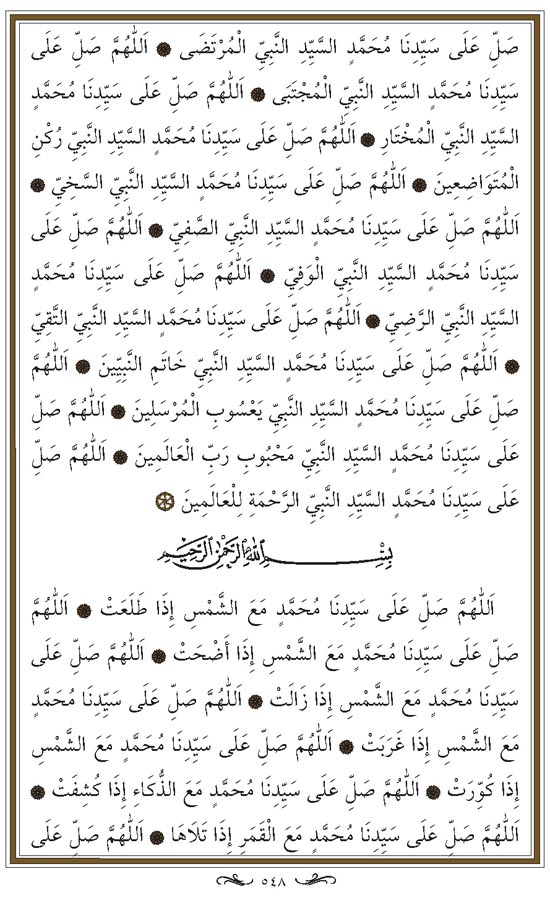 صَلِّ عَلَى سَيِّدِنَا مُحَمَّدٍ السَّيِّدِ النَّبِيِّ الْمُرْتَضَى ۞ اَللّٰهُمَّ صَلِّ عَلَى
سَيِّدِنَا مُحَمَّدٍ السَّيِّدِ النَّبِيِّ الْمُجْتَبَى ۞ اَللّٰهُمَّ صَلِّ عَلَى سَيِّدِنَا مُحَمَّدٍ
السَّيِّدِ النَّبِيِّ الْمُخْتَارِ ۞ اَللّٰهُمَّ صَلِّ عَلَى سَيِّدِنَا مُحَمَّدٍ السَّيِّدِ النَّبِيِّ رُكْنِ
الْمُتَوَاضِعِينَ ۞ اَللّٰهُمَّ صَلِّ عَلَى سَيِّدِنَا مُحَمَّدٍ السَّيِّدِ النَّبِيِّ السَّخِيِّ ۞
اَللّٰهُمَّ صَلِّ عَلَى سَيِّدِنَا مُحَمَّدٍ السَّيِّدِ النَّبِيِّ الصَّفِيِّ ۞ اَللّٰهُمَّ صَلِّ عَلَى
سَيِّدِنَا مُحَمَّدٍ السَّيِّدِ النَّبِيِّ الْوَفِيِّ ۞ اَللّٰهُمَّ صَلِّ عَلَى سَيِّدِنَا مُحَمَّدٍ
السَّيِّدِ النَّبِيِّ الرَّضِيِّ ۞ اَللّٰهُمَّ صَلِّ عَلَى سَيِّدِنَا مُحَمَّدٍ السَّيِّدِ النَّبِيِّ التَّقِيِّ
۞ اَللّٰهُمَّ صَلِّ عَلَى سَيِّدِنَا مُحَمَّدٍ السَّيِّدِ النَّبِيِّ خَاتَمِ النَّبِيِّينَ ۞ اَللّٰهُمَّ
صَلِّ عَلَى سَيِّدِنَا مُحَمَّدٍ السَّيِّدِ النَّبِيِّ يَعْسُوبِ الْمُرْسَلِينَ ۞ اَللّٰهُمَّ صَلِّ
عَلَى سَيِّدِنَا مُحَمَّدٍ السَّيِّدِ النَّبِيِّ مَحْبُوبِ رَبِّ الْعَالَمِينَ ۞ اَللّٰهُمَّ صَلِّ
عَلَى سَيِّدِنَا مُحَمَّدٍ السَّيِّدِ النَّبِيِّ الرَّحْمَةِ لِلْعَالَمِينَ ۞
بِسْمِ اللّٰهِ الرَّحْمٰنِ الرَّحِيمِ
اَللّٰهُمَّ صَلِّ عَلَى سَيِّدِنَا مُحَمَّدٍ مَعَ الشَّمْسِ إِذَا طَلَعَتْ ۞ اَللّٰهُمَّ
صَلِّ عَلَى سَيِّدِنَا مُحَمَّدٍ مَعَ الشَّمْسِ إِذَا أَضْحَتْ ۞ اَللّٰهُمَّ صَلِّ عَلَى
سَيِّدِنَا مُحَمَّدٍ مَعَ الشَّمْسِ إِذَا زَالَتْ ۞ اَللّٰهُمَّ صَلِّ عَلَى سَيِّدِنَا مُحَمَّدٍ
مَعَ الشَّمْسِ إِذَا غَرَبَتْ ۞ اَللّٰهُمَّ صَلِّ عَلَى سَيِّدِنَا مُحَمَّدٍ مَعَ الشَّمْسِ
إِذَا كُوِّرَتْ ۞ اَللّٰهُمَّ صَلِّ عَلَى سَيِّدِنَا مُحَمَّدٍ مَعَ الذُّكَاءِ إِذَا كُشِفَتْ ۞
اَللّٰهُمَّ صَلِّ عَلَى سَيِّدِنَا مُحَمَّدٍ مَعَ الْقَمَرِ إِذَا تَلَاهَا ۞ اَللّٰهُمَّ صَلِّ عَلَى
٥٤٨